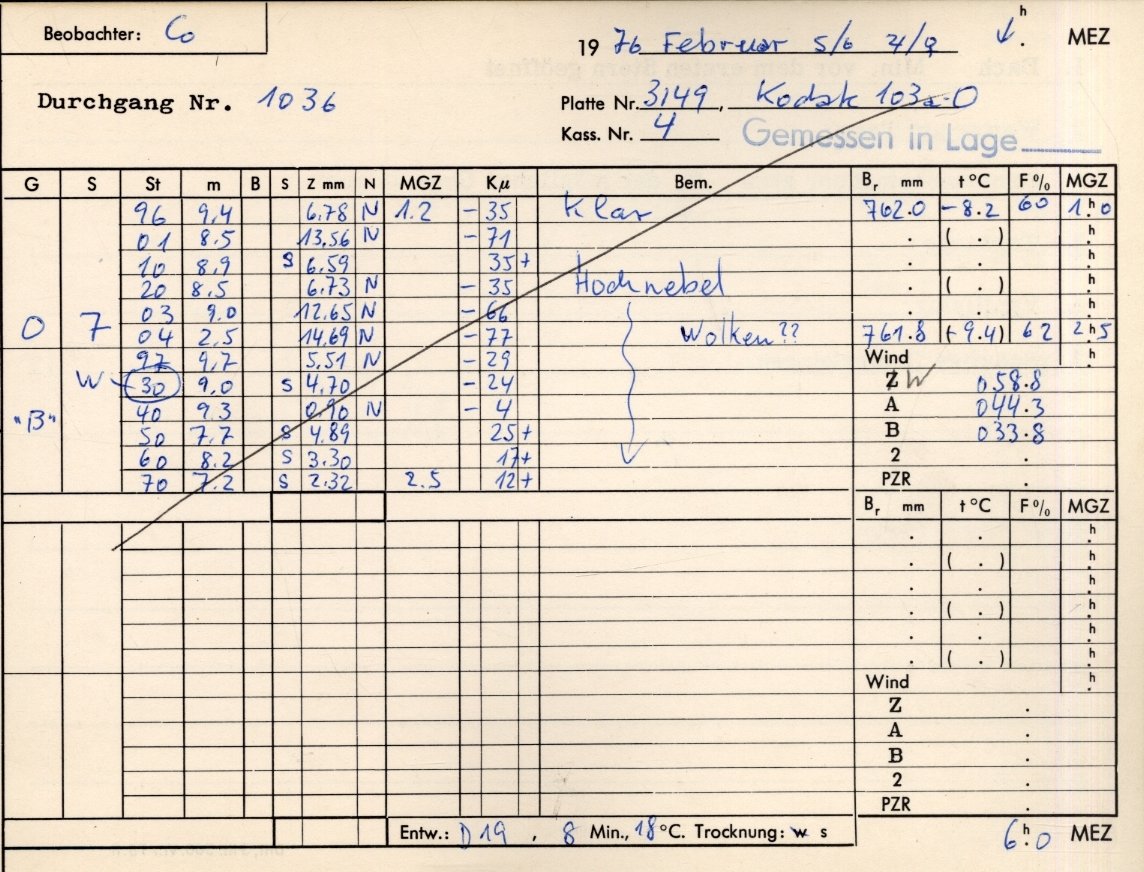 Beobachter: Co
19 76 Februar 5/6 h MEZ
Durchgang Nr. 1036
Platte Nr. 3149, Kodak 103a-O
Kass. Nr. 4
Gemessen in Lage
G S St m B S Z mm N MGZ Kμ Bem. Br mm t °C F % MGZ
96 9,4 6,78 N 1.2 - 35 Klar 762.0 -8.2 60 1h.0
01 8.5 13,56 N - 71 . ( . ) h.
10 8,9 S 6,59 35+ . . h.
20 8,5 6,73 N - 35 Hochnebel . ( . ) h.
03 9.0 12.65 N - 66 . . h.
0 7 04 2,5 14,69 N - 77 Wolken?? 761.8 (-9.4) 62 2h.5
97 9,7 5,51 N - 29 Wind h.
W 30 9,0 S 4,70 - 24 Z W 058.8
"B" 40 9,3 0,90 N - 4 A 044.3
50 7,7 S 4,89 25+ B 033.8
60 8,2 S 3,30 17+ 2 .
70 7,2 S 2,32 2.5 12+ PZR .
Br mm t °C F % MGZ
. . h.
. ( . ) h.
. . h.
. ( . ) h.
. . h.
. ( . ) h.
Wind h.
Z .
A .
B .
2 .
PZR .
Entw.: D19, 8 Min., 18 °C. Trocknung: w s
6h.0 MEZ